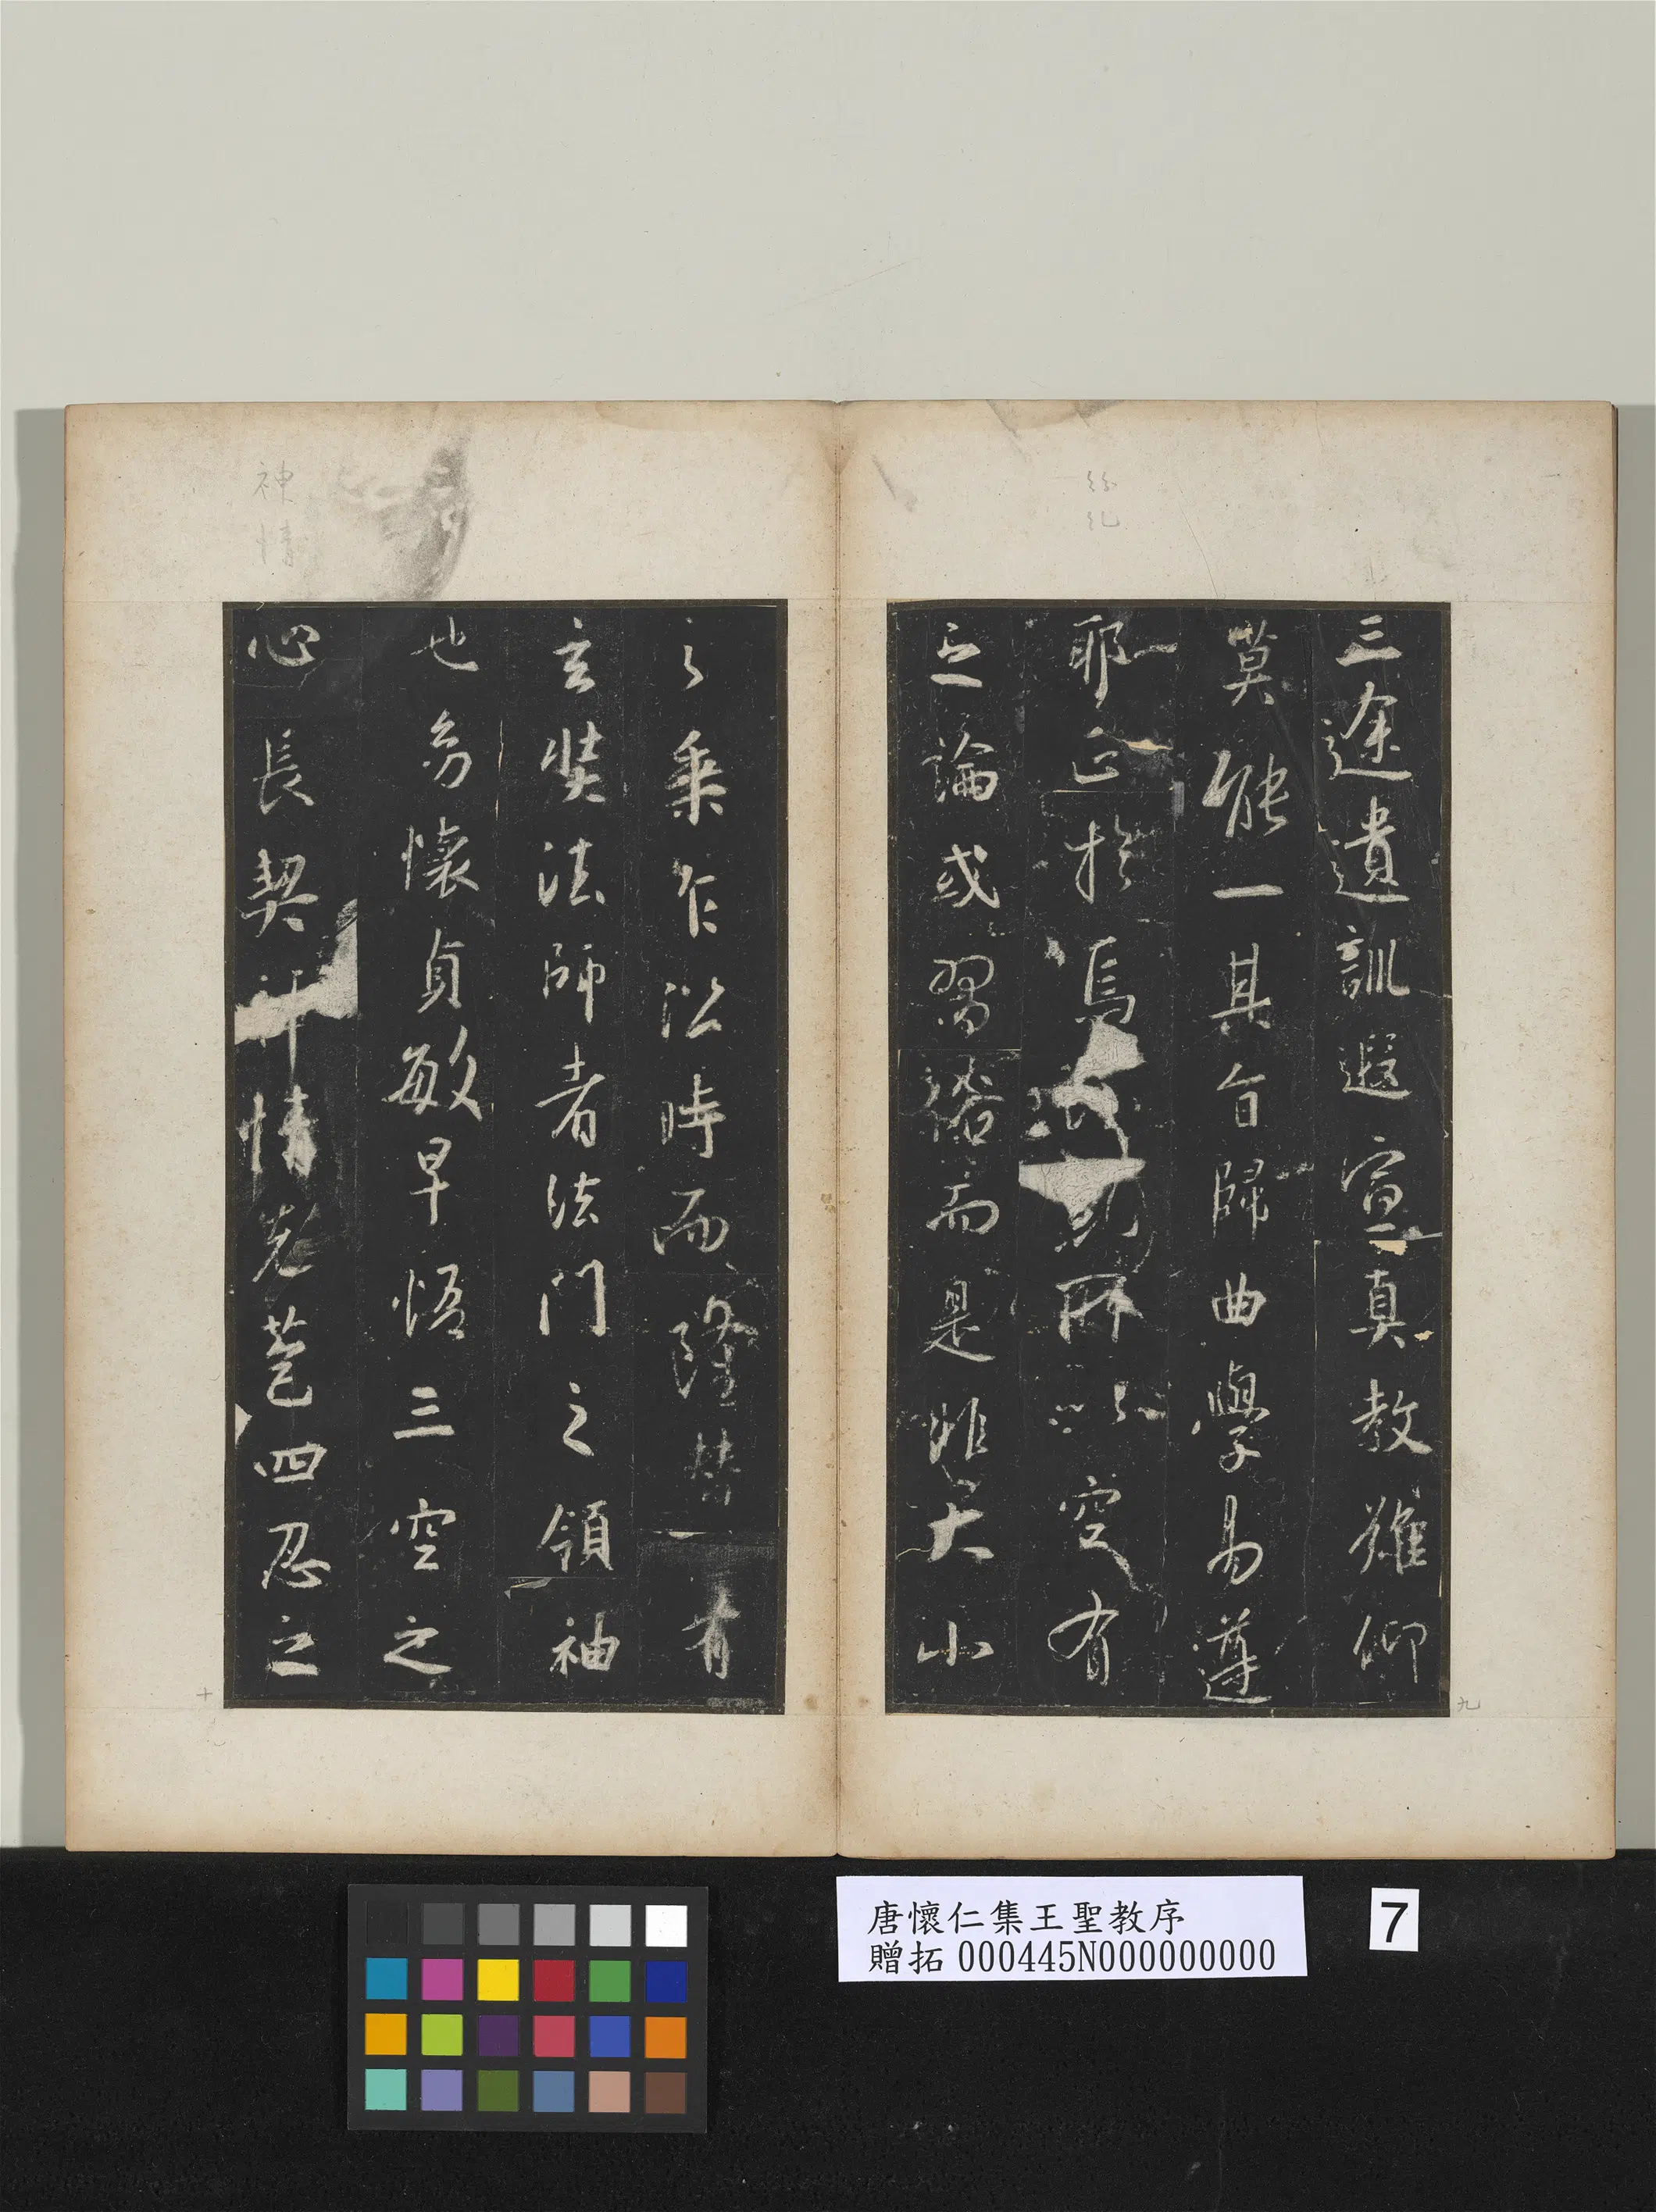 紛
糺
三途遺訓遐宣真教難仰
莫能一其旨歸曲學易遵
耶正於焉所以空有
之論或習俗而是非大小
九
神
情
之乘乍沿時而隆替有
玄奘法師者法門之領袖
也幼懷貞敏早悟三空之
心長契神情先苞四忍之
十
唐懷仁集王聖教序
贈拓 000445N000000000
7